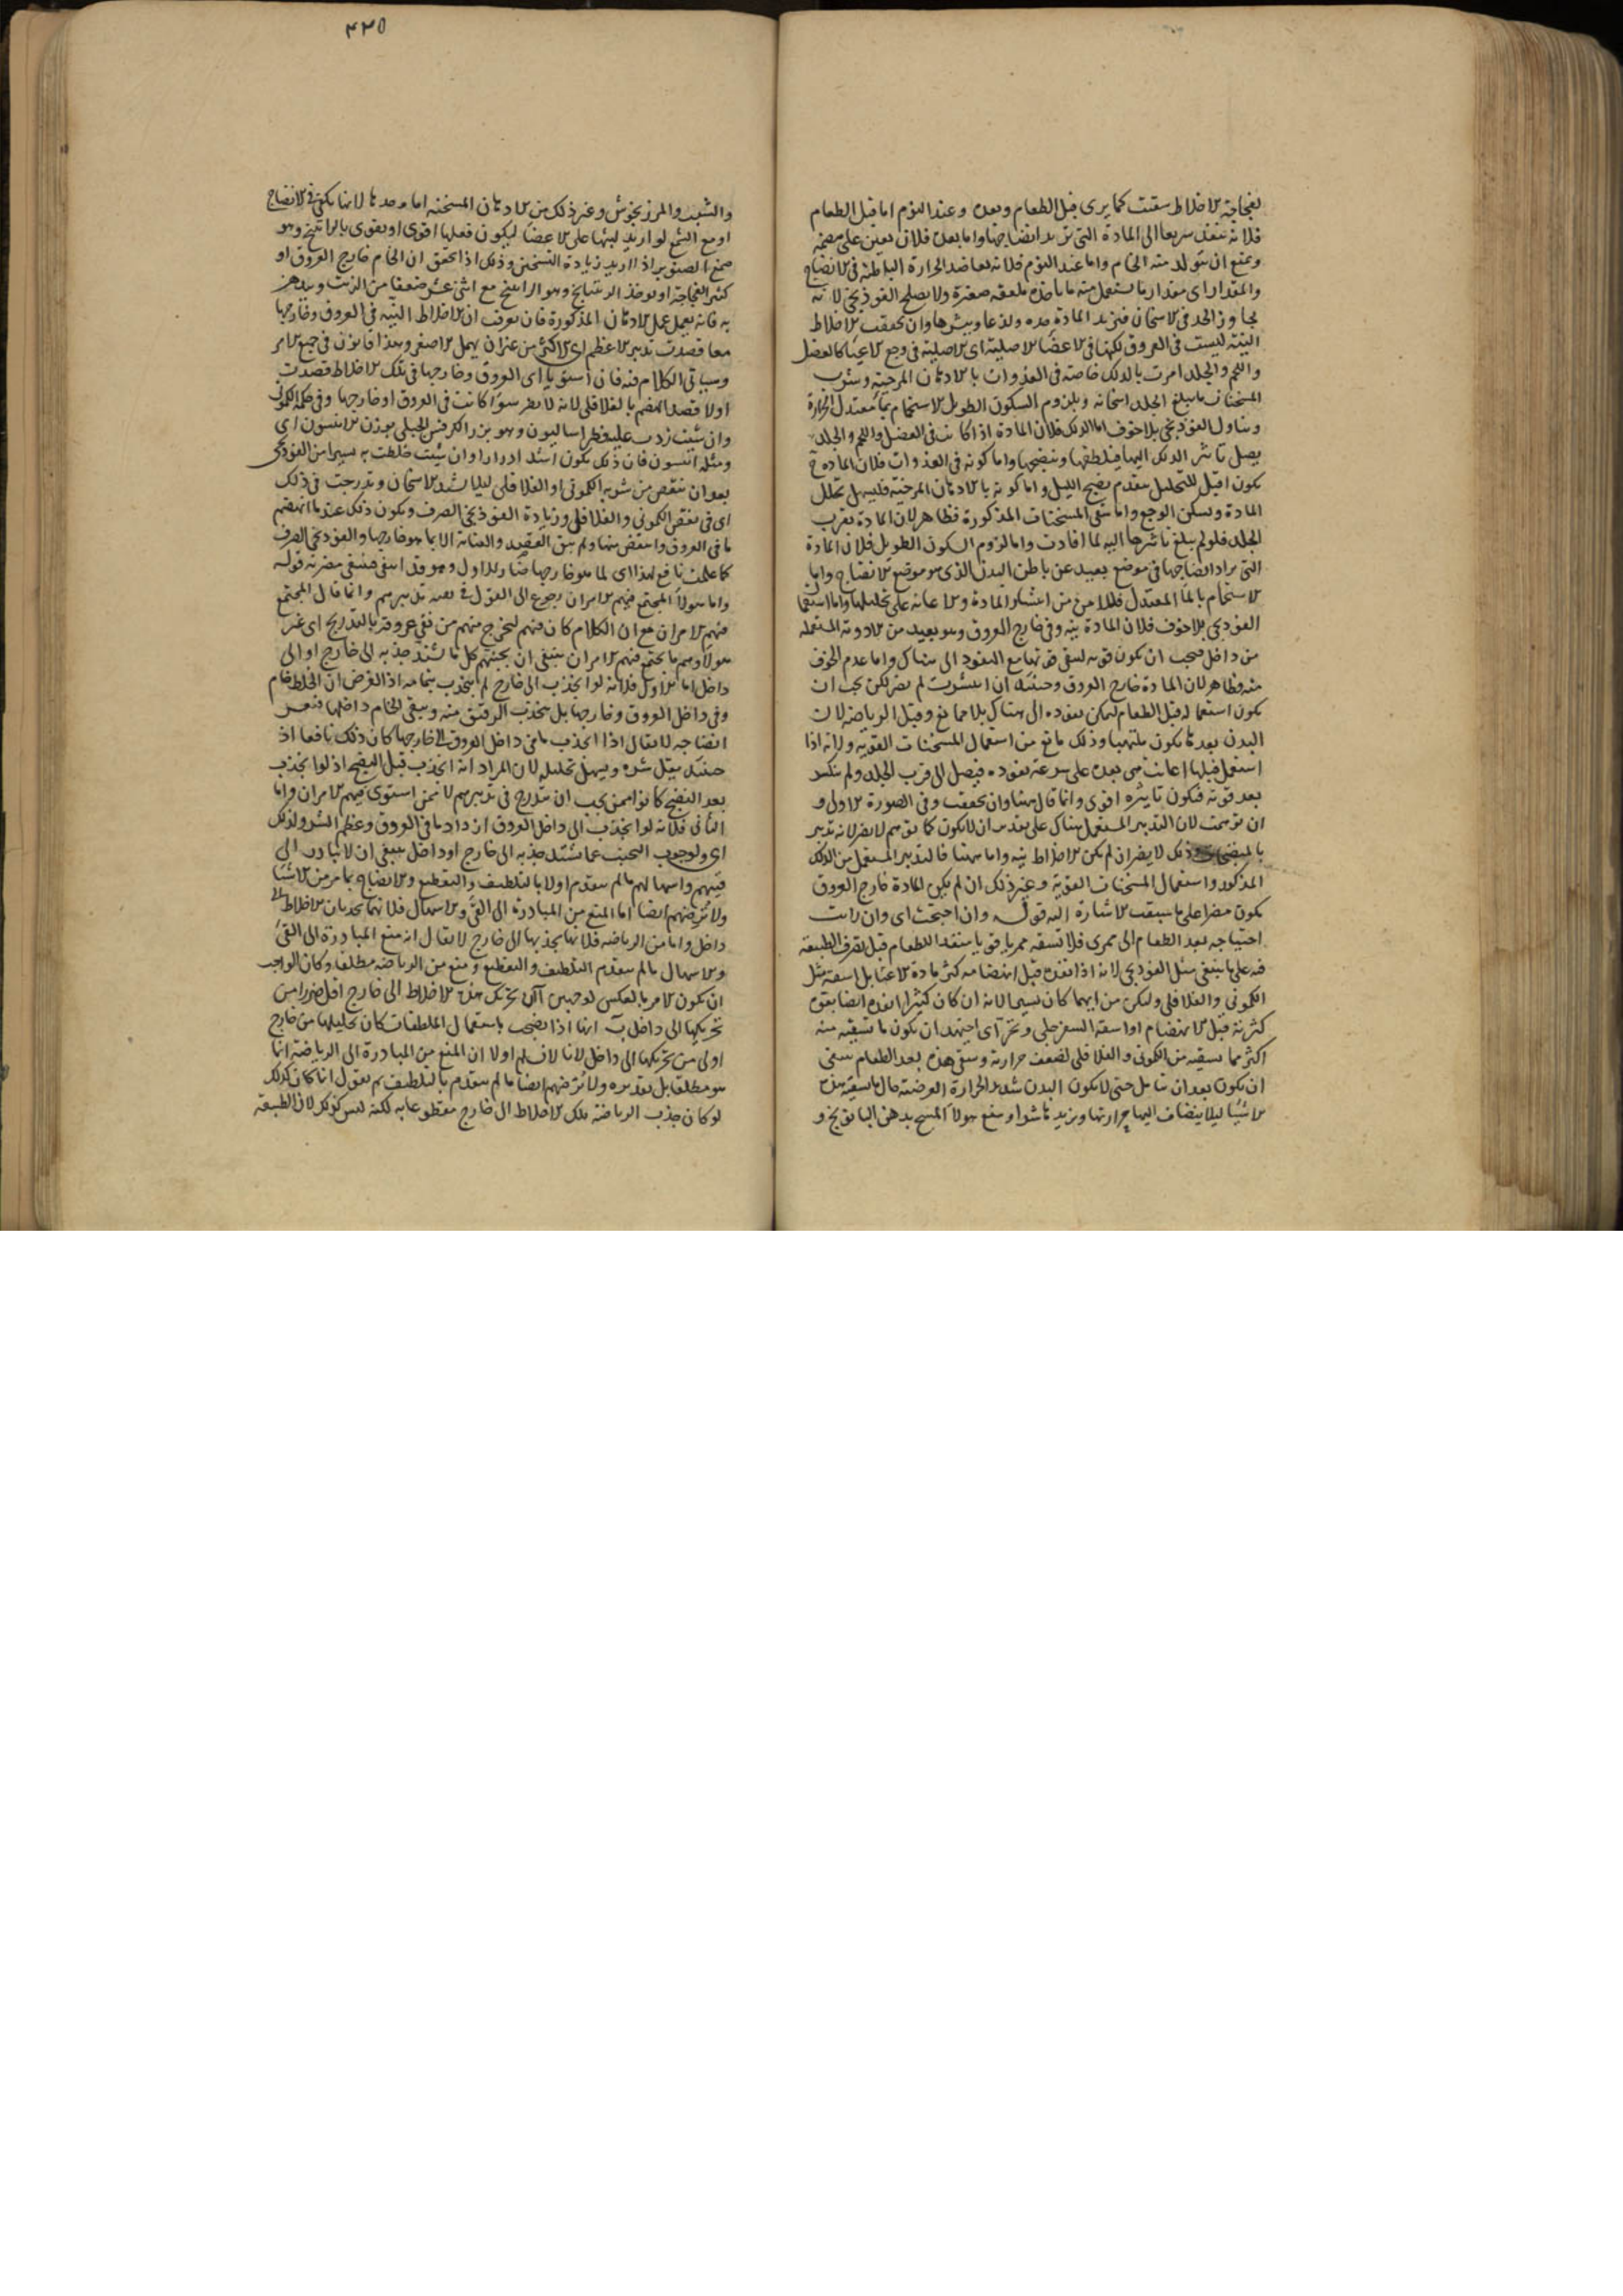 لفجاجة الاخلاط سقيت كما يرى قبل الطعام وبعده وعند النوم اما قبل الطعام
فلانه ينفذ سريعا الى المادة التى نريد انضاجها واما بعده فلان يعين على هضمه
ويمنع ان يتولد منه الخام واما عند النوم فلانه يعاضد الحرارة الباطنة فى الانضاج
والمقدار اى مقدار ما يستعمل منه ما ياخذه ملعقة صغيرة ولا يصلح الفوذنجى لانه
يجاوز الحد فى الاسخان فيزيد المادة حده ولذعا ويبثرها وان تحققت الاخلاط
النيئة ليست فى العروق لكنها فى الاعضا الاصلية اى الاصلية فى وجع الاعيا كالعضل
واللحم والجلد امرت بالدلك خاصة فى الغدوات بالادهان المرخية وشرب
المسخنات ما يبلغ الجلد اسخانه ويلزم السكون الطويل الاستحمام بما معتدل الحرارة
وتناول الفوذنجى بلا خوف اما الدلك فلان المادة اذا كانت فى العضل واللحم والجلد
يصل تاثير الدلك اليها فيلطفها وينضجها واما كونه فى الغدوات فلان المادة ح
يكون اقبل للتحليل بتقدم نضج الليل واما كونه بالادهان المرخية فليسهل تحلل
المادة ويسكن الوجع واما سقى المسخنات المذكورة فظاهر لان المادة بقرب
الجلد فلو لم يبلغ تاثيرها اليه لما افادت واما لزوم السكون الطويل فلان المادة
التى يراد انضاجها فى موضع بعيد عن باطن البدن الذى هو موضع الانضاج واما
الاستحمام بالما المعتدل فللامن من انتشار المادة والاعانة على تحليلها واما استعمال
الفوذنجى بلا خوف فلان المادة نية وفى خارج العروق وهو بعيد من الادوية المستعملة
من داخل فيجب ان يكون قويه ليبقى قوتها مع النفوذ الى هناك واما عدم الخوف
منه فظاهر لان المادة خارج العروق وحينئذ ان انتشرت لم يضر لكن يجب ان
يكون استعماله قبل الطعام ليمكن نفوذه الى هناك بلا ممانع وقبل الرياضة لان
البدن بعدها يكون ملتهبا وذلك مانع من استعمال المسخنات القوية ولانه اذا
استعمل قبلها اعانت هى بعده على سرعة نفوذه فيصل الى قرب الجلد ولم ينكسر
بعد قوته فيكون تاثيره اقوى وانما قال هنا وان تحققت وفى الصورة الاولى و
ان توهمت لان التدبير المستعمل هناك على تقدير ان لا يكون كما توهم لا يضر لانه تدبير
ذلك لا يضر ان لم يكن الاخلاط نية واما هنا فالتدبير المستعمل من الدلك
المذكور واستعمال المسخنات القوية وغير ذلك ان لم يكن المادة خارج العروق
يكون مضرا على ما سبقت الاشارة اليه قوله وان احتجت اى وان رات
احتياجه بعد الطعام الى ممرى فلا تسقه ممريا قويا منفذا للطعام قبل تصرف الطبيعة
فيه على ما ينبغى مثل الفوذنجى لانه اذا نفذه قبل انهضامه كثر مادة الاعيا بل اسقه مثل
الكمونى والفلافلى وليكن من ايهما كان يسيرا لانه ان كان كثيرا انفذه ايضا بقوة
كثرته قبل الانهضام او اسقه السفرجلى وتحر اى اجتهد ان يكون ما تسقيه منه
اكثر مما يسقيه من الكمونى والفلافلى لضعف حرارته وسقى هذه بعد الطعام ينبغى
ان يكون بعد ان تامل حتى لا يكون البدن شديد الحرارة العرضية حال ما تسقيه من
الاشيا ليلا يتضاف اليها حرارتها ويزيد ما شوا وينفع هولا المسح بدهن البابونج و
۴۳۵
والشبت والمرزنجوش وغير ذلك من الادهان المسخنة اما وحدها لانها يكفى فى الانضاج
او مع الشمع لو اريد لبثها على الاعضا ليكون فعلها اقوى او يقوى بالراتينج وهو
صمغ الصنوبر اذا اريد زيادة التسخين وذلك اذا تحقق ان الخام خارج العروق او
كثير الفجاجة او يوخذ الريتيانج وهو الراتينج مع اثنى عشر ضعفا من الزيت ويدهن
به فانه يعمل عمل الادهان المذكورة فان عرفت ان الاخلاط النية فى العروق وخارجها
معا قصدت تدبير الاعظم اى الاكثر من غير ان يهمل الاصغر وهذا قانون فى جميع الامر
وسياتى الكلام فيه فان استويا اى العروق وخارجها فى تلك الاخلاط قصدت
اولا قصد الهضم بالفلافلى لانه لا يضر سوا كانت فى العروق او خارجها وفى حكمه الكمونى
وان شئت زدت عليه فطراساليون وهو بزر الكرفس الجبلى بوزن الانيسون اى
ومثله انيسون فان ذلك يكون اشد ادرارا وان شئت خلطت به يسيرا من الفوذنجى
بعد ان ينقص من شربه الكمونى او الفلافلى ليلا يشد الاسخان وتدرجت فى ذلك
اى فى نقص الكمونى والفلافلى وزيادة الفوذنجى الصرف ويكون ذلك عند ما انهضم
ما فى العروق وانتقص منها ولم يبق القصد والعناية الا بما هو خارجها والفوذنجى الصرف
كما علمت نافع لهذا اى لما هو خارجها ضار للاول وهو
واما هولا المجتمع فيهم الامران رجوع الى القول فى بقية تدبيرهم وانما قال المجتمع
فيهم الامران مع ان الكلام كان فيهم ليخرج منهم من نقى عروقه بالتدريج اى غير
هولا وهم ما يجتمع فيهم الامران ينبغى ان يجنبهم كل ما يشتد جذبه الى خارج او الى
داخل اما الاول فلانه لو انجذب الى خارج لم ينجذب بتمامه اذا الفرض ان الخلط خام
وفى داخل العروق وخارجها بل ينجذب الرقيق منه ويبقى الخام داخلها فيعسر
انضاجه لا يقال اذا انجذب ما فى داخل العروق الى خارجها كان ذلك نافعا اذ
حينئذ يقل شره ويسهل تحليله لان المراد انه انجذب قبل النضج اذ لو انجذب
بعد النضج كانوا ممن يجب ان يتدرج فى تدبيرهم لا ممن استوى فيهم الامران واما
الثانى فلانه لو انجذب الى داخل العروق ازداد ما فى العروق وعظم الشر ولذلك
اى ولوجوب التجنب عما يشتد جذبه الى خارج او داخل ينبغى ان لا يبادر الى
قيئهم واسهالهم ما لم يتقدم اولا بالتلطيف والتقطيع والانضاج بما مر من الاشيا
ولا تريضهم ايضا اما المنع من المبادرة الى القى والاسهال فلانهما يجذبان الاخلاط الى
داخل واما من الرياضة فلانها يجذبها الى خارج لا يقال انه منع المبادرة الى القى
والاسهال ما لم يتقدم التلطيف والتقطيع ومنع من الرياضة مطلقا وكان الواجب
ان يكون الامر بالعكس لوجهين آ ان تحريك هذه الاخلاط الى خارج اقل ضررا من
تحريكها الى داخل ب انها اذا نضجت باستعمال الملطفات كان تحليلها من خارج
اولى من تحريكها الى داخل لانا لا نسلم اولا ان المنع من المبادرة الى الرياضة انما
هو مطلقا بل تقديره ولا تريضهم ايضا ما لم يتقدم بالتلطيف ثم نقول انما كان كذلك
لو كان جذب الرياضة تلك الاخلاط الى خارج مقطوعا به لكنه ليس كذلك لان الطبيعة